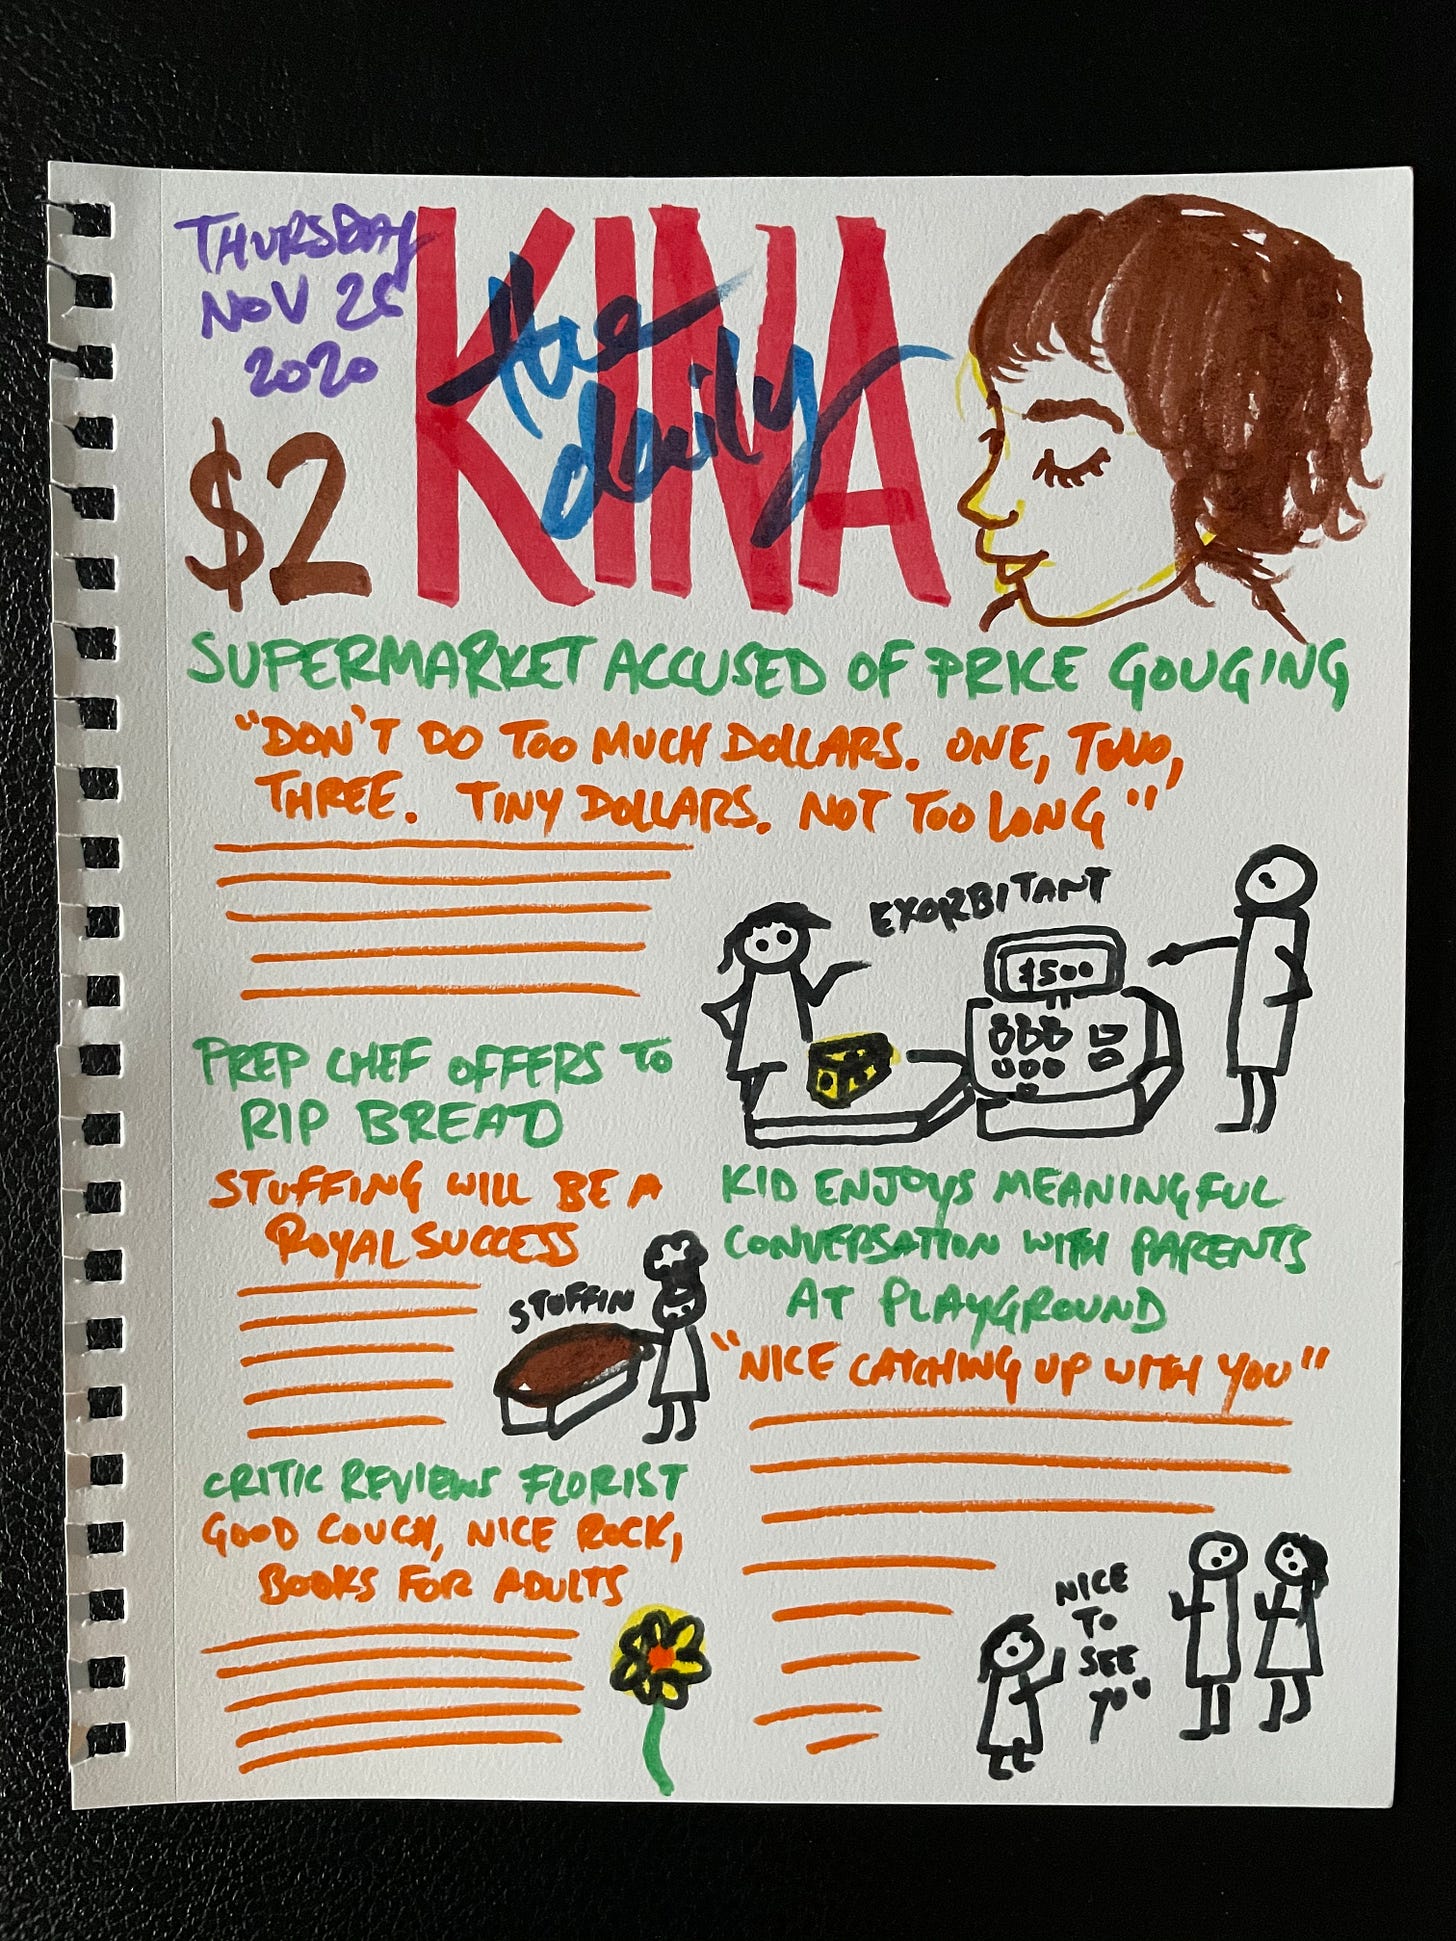 THURSDAY
NOV 26
2020
$2
the
daily
KINA
SUPERMARKET ACCUSED OF PRICE GOUGING
"DON'T DO TOO MUCH DOLLARS. ONE, TWO,
THREE. TINY DOLLARS. NOT TOO LONG"
EXORBITANT
$500
PREP CHEF OFFERS TO
RIP BREAD
STUFFING WILL BE A
ROYAL SUCCESS
STUFFIN
CRITIC REVIEWS FLORIST
GOOD COUCH, NICE ROCK,
BOOKS FOR ADULTS
KID ENJOYS MEANINGFUL
CONVERSATION WITH PARENTS
AT PLAYGROUND
"NICE CATCHING UP WITH YOU"
NICE
TO
SEE
YOU